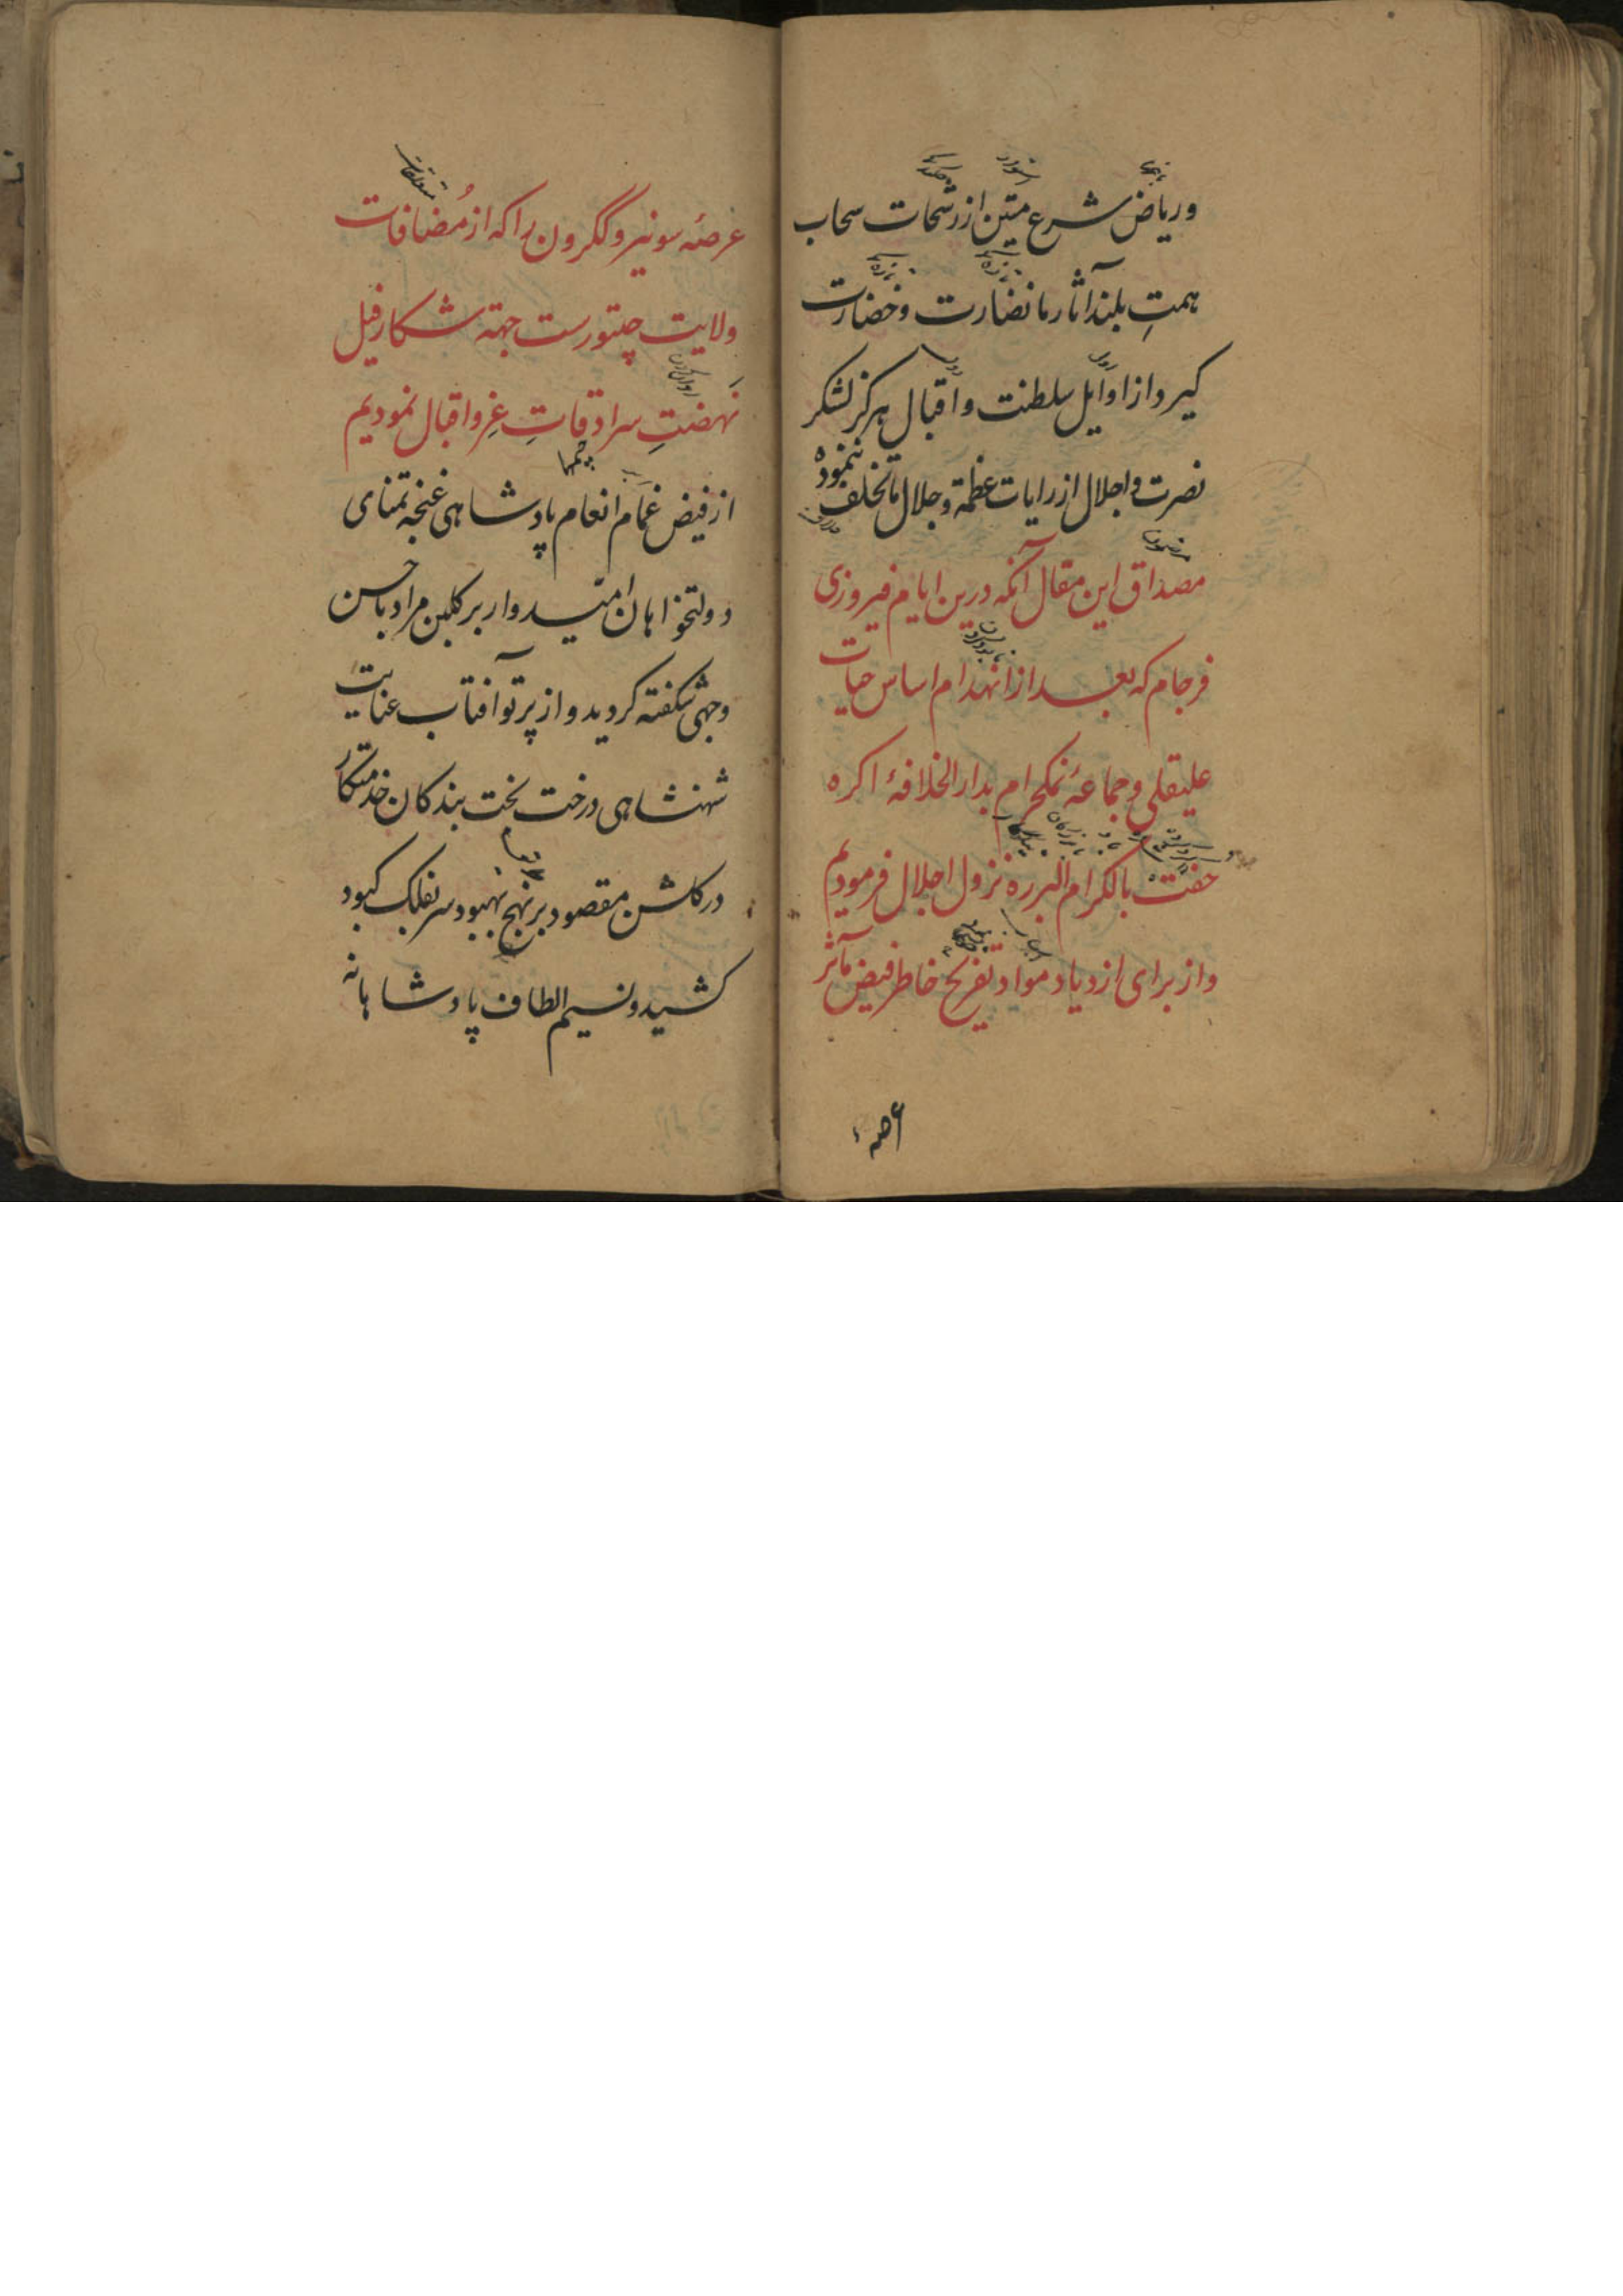 و ریاض شرع متین از رشحات سحاب
همتِ بلند آثار ما نضارت و خضارت
کیرد و از اوایل سلطنت و اقبال هرکز لشکر
نصرت و اجلال از رایات عظمة و جلال ما تخلف ننموده
مصداق این مقال آنکه درین ایام فیروزی
فرجام که بعد از انهدام اساس حیات
علیقلی و جماعهٔ نمکحرام بدار الخلافهٔ اکره
حفت بالکرام البرره نزول اجلال فرمودیم
و از برای ازدیاد مواد تفریح خاطر فیض مآثر
عرصهٔ
عرصهٔ سونیر و ککرون را که از مُضافات
ولایت چیتورست جهته شکار فیل
نَهضتِ سرادقاتِ عِز و اقبال نمودیم
از فیض غمام انعام پادشاهی غنچه تمنای
دولتخواهان امیدوار بر کلبن مراد باحسن
وجهی شکفته کردید و از پرتو آفتاب عنایت
شهنشاهی درخت بخت بندکان خدمتکار
در کلشن مقصود بر نهج بهبود سر بفلک کبود
کشید و نسیم الطاف پادشاهانه